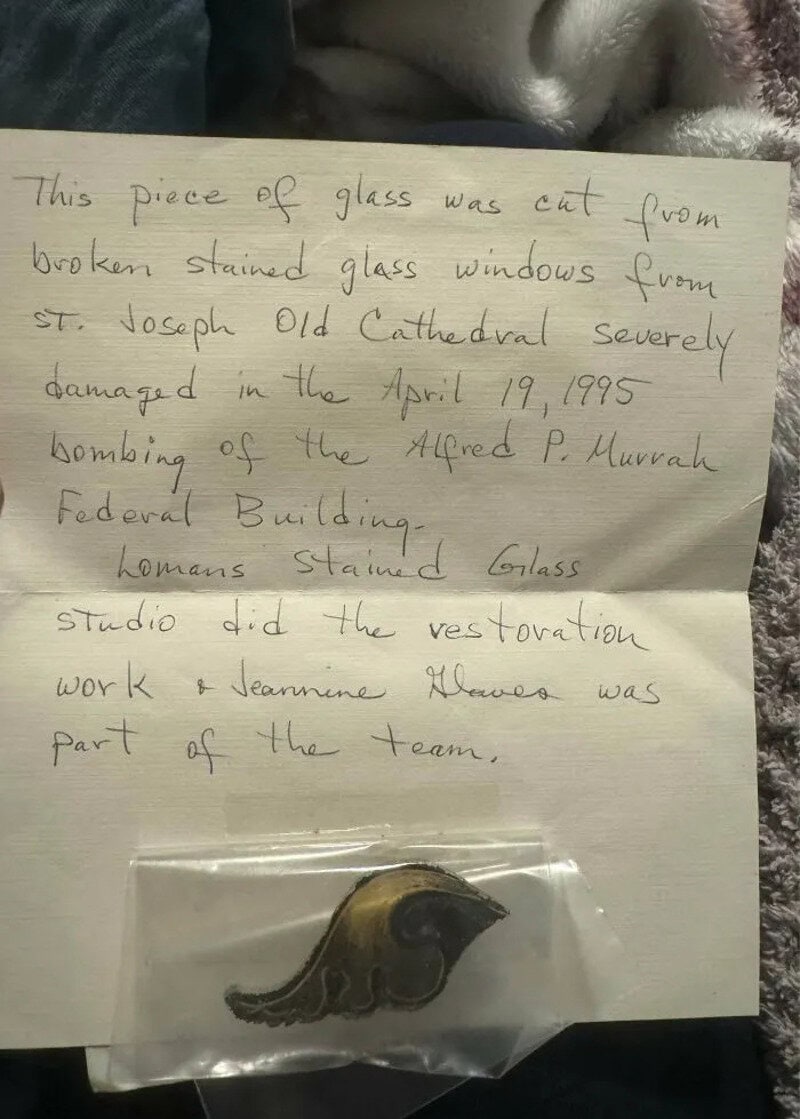 This piece of glass was cut from
broken stained glass windows from
ST. Joseph Old Cathedral severely
damaged in the April 19, 1995
bombing of the Alfred P. Murrah
Federal Building.
Lomans Stained Glass
Studio did the restoration
work & Jeannine
was
part of the team.